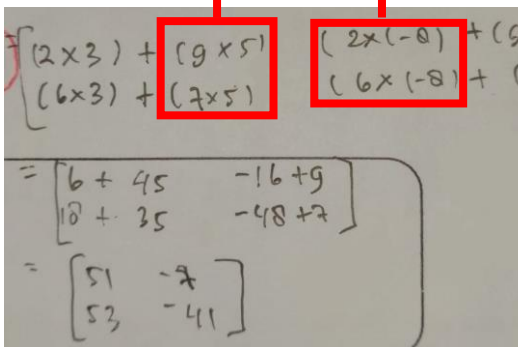 = [(2×3) + (9×5) (2×(-8) + (9
(6×3) + (7×5) (6×(-8) + (
= [6 + 45 -16+9
18 + 35 -48+7]
= [51 -7
53 -41]